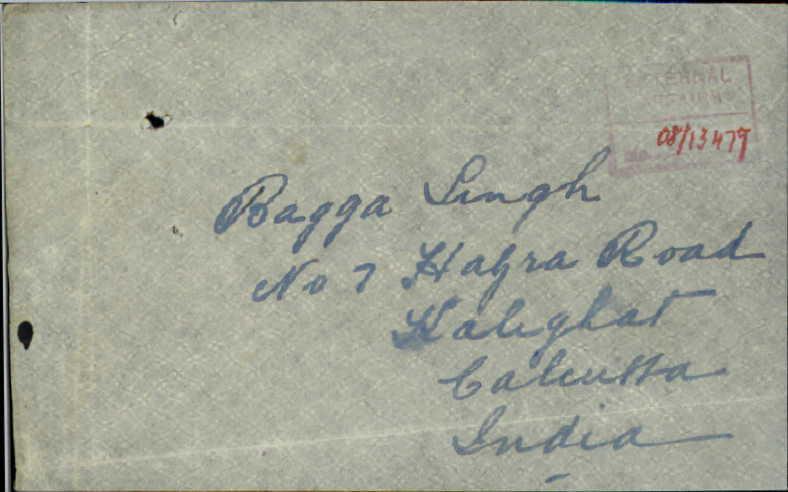 EXTERNAL
08/13479
Bagga Singh
No 7 Hazra Road
Kalighat
Calcutta
India